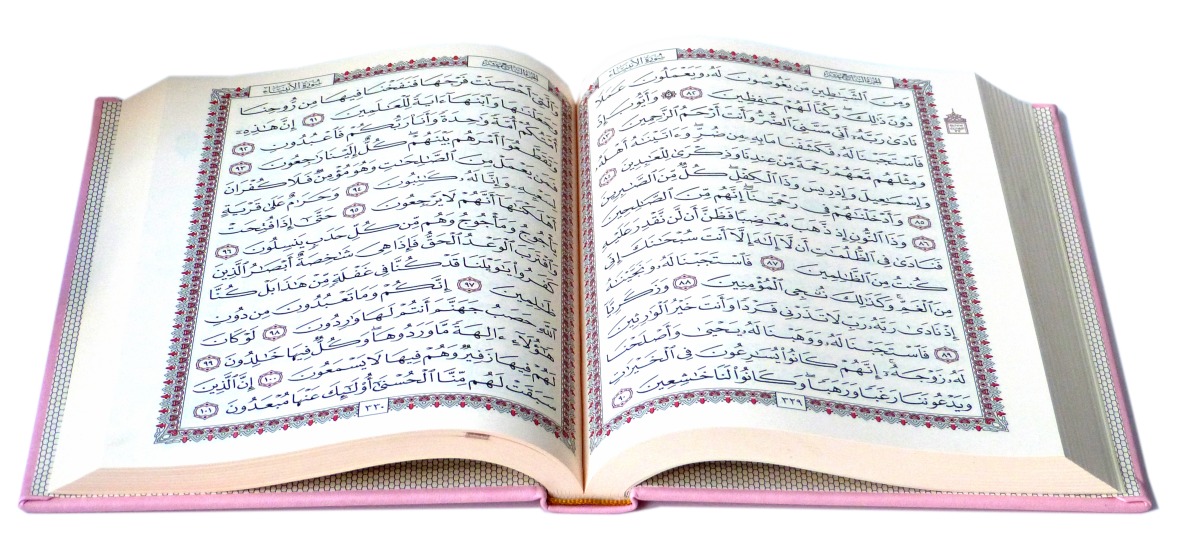 سُورَةُ الأَنبِيَاءِ
وَمِنَ ٱلشَّيَٰطِينِ مَن يَغُوصُونَ لَهُۥ وَيَعْمَلُونَ عَمَلًا
دُونَ ذَٰلِكَۖ وَكُنَّا لَهُمْ حَٰفِظِينَ ٨٢ ۞ وَأَيُّوبَ إِذْ
نَادَىٰ رَبَّهُۥٓ أَنِّي مَسَّنِيَ ٱلضُّرُّ وَأَنتَ أَرْحَمُ ٱلرَّٰحِمِينَ
فَٱسْتَجَبْنَا لَهُۥ فَكَشَفْنَا مَا بِهِۦ مِن ضُرٍّۖ وَءَاتَيْنَٰهُ أَهْلَهُۥ
وَمِثْلَهُم مَّعَهُمْ رَحْمَةً مِّنْ عِندِنَا وَذِكْرَىٰ لِلْعَٰبِدِينَ
وَإِسْمَٰعِيلَ وَإِدْرِيسَ وَذَا ٱلْكِفْلِۖ كُلٌّ مِّنَ ٱلصَّٰبِرِينَ
٨٥ وَأَدْخَلْنَٰهُمْ فِي رَحْمَتِنَآۖ إِنَّهُم مِّنَ ٱلصَّٰلِحِينَ
٨٦ وَذَا ٱلنُّونِ إِذ ذَّهَبَ مُغَٰضِبًا فَظَنَّ أَن لَّن نَّقْدِرَ عَلَيْهِ
فَنَادَىٰ فِي ٱلظُّلُمَٰتِ أَن لَّآ إِلَٰهَ إِلَّآ أَنتَ سُبْحَٰنَكَ إِنِّي
كُنتُ مِنَ ٱلظَّٰلِمِينَ ٨٧ فَٱسْتَجَبْنَا لَهُۥ وَنَجَّيْنَٰهُ
مِنَ ٱلْغَمِّۚ وَكَذَٰلِكَ نُۨجِي ٱلْمُؤْمِنِينَ ٨٨ وَزَكَرِيَّآ
إِذْ نَادَىٰ رَبَّهُۥ رَبِّ لَا تَذَرْنِي فَرْدًا وَأَنتَ خَيْرُ ٱلْوَٰرِثِينَ
٨٩ فَٱسْتَجَبْنَا لَهُۥ وَوَهَبْنَا لَهُۥ يَحْيَىٰ وَأَصْلَحْنَا
لَهُۥ زَوْجَهُۥٓۚ إِنَّهُمْ كَانُوا۟ يُسَٰرِعُونَ فِي ٱلْخَيْرَٰتِ
وَيَدْعُونَنَا رَغَبًا وَرَهَبًاۖ وَكَانُوا۟ لَنَا خَٰشِعِينَ ٩٠
٣٢٩
سُورَةُ الأَنبِيَاءِ
وَٱلَّتِيٓ أَحْصَنَتْ فَرْجَهَا فَنَفَخْنَا فِيهَا مِن رُّوحِنَا
وَجَعَلْنَٰهَا وَٱبْنَهَآ ءَايَةً لِّلْعَٰلَمِينَ ٩١ إِنَّ هَٰذِهِۦٓ
أُمَّتُكُمْ أُمَّةً وَٰحِدَةً وَأَنَا۠ رَبُّكُمْ فَٱعْبُدُونِ ٩٢
وَتَقَطَّعُوٓا۟ أَمْرَهُم بَيْنَهُمْۖ كُلٌّ إِلَيْنَا رَٰجِعُونَ ٩٣
فَمَن يَعْمَلْ مِنَ ٱلصَّٰلِحَٰتِ وَهُوَ مُؤْمِنٌ فَلَا كُفْرَانَ
لِسَعْيِهِۦ وَإِنَّا لَهُۥ كَٰتِبُونَ ٩٤ وَحَرَٰمٌ عَلَىٰ قَرْيَةٍ
أَهْلَكْنَٰهَآ أَنَّهُمْ لَا يَرْجِعُونَ ٩٥ حَتَّىٰٓ إِذَا فُتِحَتْ
يَأْجُوجُ وَمَأْجُوجُ وَهُم مِّن كُلِّ حَدَبٍ يَنسِلُونَ ٩٦
وَٱقْتَرَبَ ٱلْوَعْدُ ٱلْحَقُّ فَإِذَا هِيَ شَٰخِصَةٌ أَبْصَٰرُ ٱلَّذِينَ
كَفَرُوا۟ يَٰوَيْلَنَا قَدْ كُنَّا فِي غَفْلَةٍ مِّنْ هَٰذَا بَلْ كُنَّا
ظَٰلِمِينَ ٩٧ إِنَّكُمْ وَمَا تَعْبُدُونَ مِن دُونِ
ٱللَّهِ حَصَبُ جَهَنَّمَ أَنتُمْ لَهَا وَٰرِدُونَ ٩٨ لَوْ كَانَ
هَٰٓؤُلَآءِ ءَالِهَةً مَّا وَرَدُوهَاۖ وَكُلٌّ فِيهَا خَٰلِدُونَ ٩٩
لَهُمْ فِيهَا زَفِيرٌ وَهُمْ فِيهَا لَا يَسْمَعُونَ ١٠٠ إِنَّ ٱلَّذِينَ
سَبَقَتْ لَهُم مِّنَّا ٱلْحُسْنَىٰٓ أُو۟لَٰٓئِكَ عَنْهَا مُبْعَدُونَ ١٠١
٣٣٠